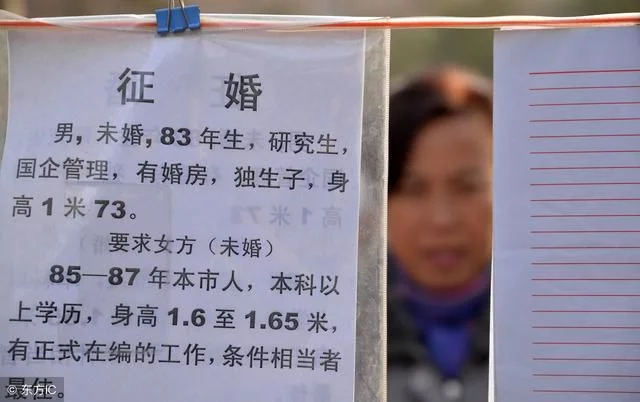 征 婚
男，未婚，83年生，研究生，
国企管理，有婚房，独生子，身
高1米73。
要求女方（未婚）
85—87年本市人，本科以
上学历，身高1.6至1.65米，
有正式在编的工作，条件相当者
最佳。
© 东方IC